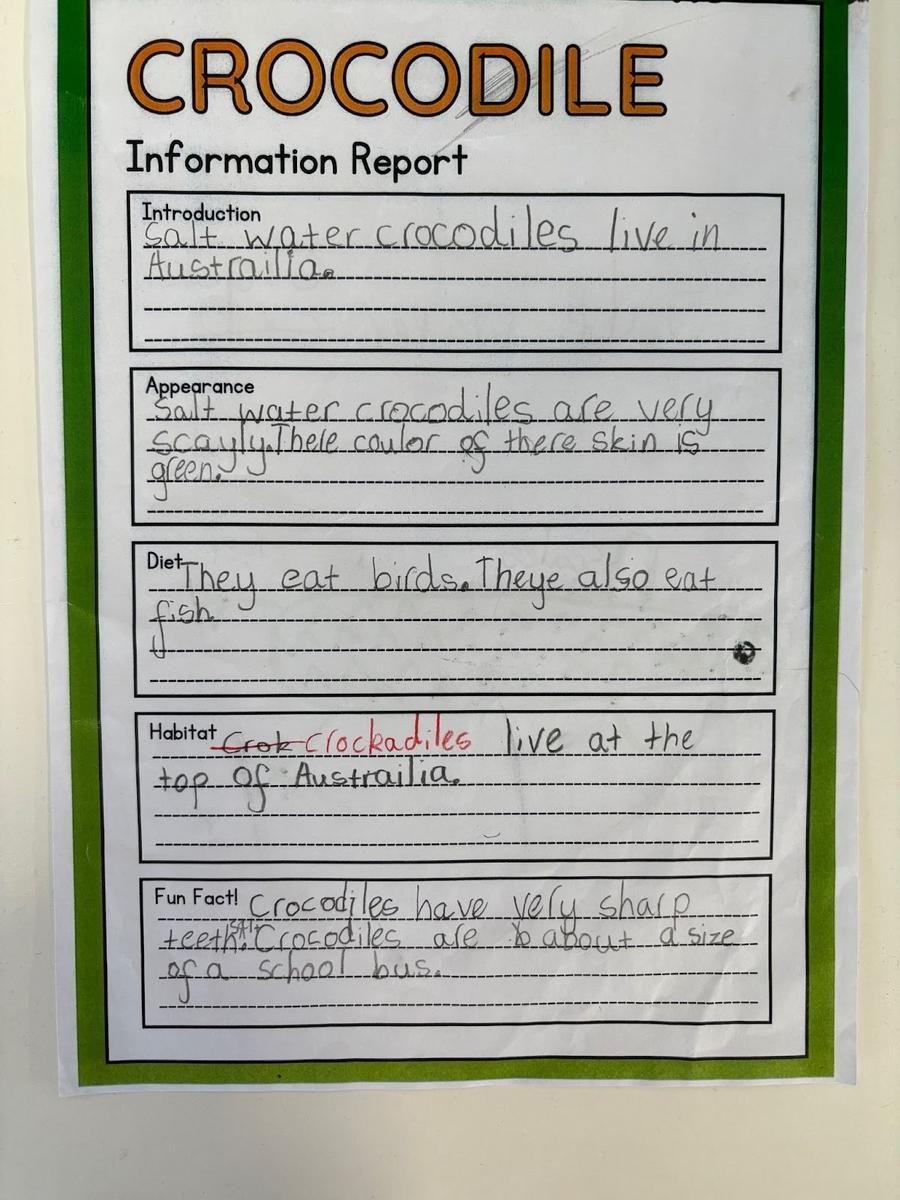 CROCODILE
Information Report
Introduction
Salt water crocodiles live in
Austrailia.
Appearance
Salt water crocodiles are very
scayly. Thele coulor of there skin is
green.
Diet They eat birds. Theye also eat
fish
Habitat Crok crockadiles live at the
top of Austrailia.
Fun Fact! Crocodiles have very sharp
teeth. Crocodiles are b about a size
of a school bus.